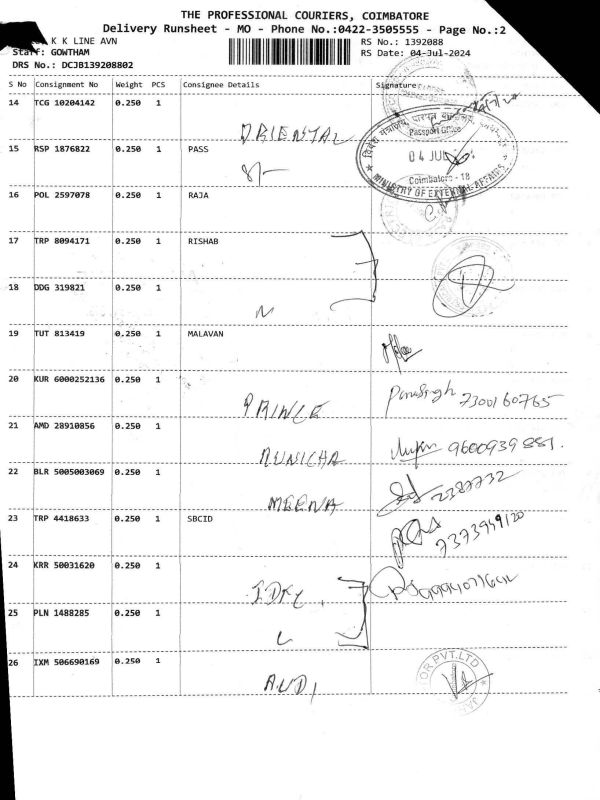 THE PROFESSIONAL COURIERS, COIMBATORE
Delivery Runsheet - MO - Phone No.:0422-3505555 - Page No.:2
K K LINE AVN
RS No.: 1392088
Staff: GOWTHAM
RS Date: 04-Jul-2024
DRS No.: DCJB139208802
S No Consignment No Weight PCS Consignee Details Signature
14 TCG 10204142 0.250 1
ORIENTAL
Passport Office
04 JUL
Coimbatore - 18
MINISTRY OF EXTERNAL AFFAIRS
15 RSP 1876822 0.250 1 PASS
16 POL 2597078 0.250 1 RAJA
17 TRP 8094171 0.250 1 RISHAB
18 DDG 319821 0.250 1
19 TUT 813419 0.250 1 MALAVAN
20 KUR 6000252136 0.250 1
PRINCE 7300160765
21 AMD 28910856 0.250 1
RUNICHA 9600939881.
22 BLR 5005003069 0.250 1
MEENA 2387232
23 TRP 4418633 0.250 1 SBCID
7373949120
24 KRR 50031620 0.250 1
25 PLN 1488285 0.250 1
26 IXM 506690169 0.250 1
AUDI
PVT.LTD